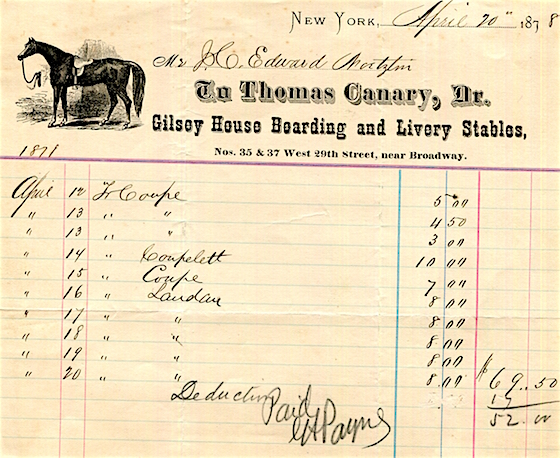 New York, April 20" 1878
Mr J. C. Edward
To Thomas Canary, Dr.
Gilsey House Boarding and Livery Stables,
Nos. 35 & 37 West 29th Street, near Broadway.
1878
April 12 Coupe 5 00
" 13 " " 4 50
" 13 " " 3 00
" 14 Coupelett 10 00
" 15 Coupe 7 00
" 16 Landau 8 00
" 17 " " 8 00
" 18 " " 8 00
" 19 " " 8 00
" 20 " " 8 00 $69.50
Deduction 17
52.00
Paid
Payne